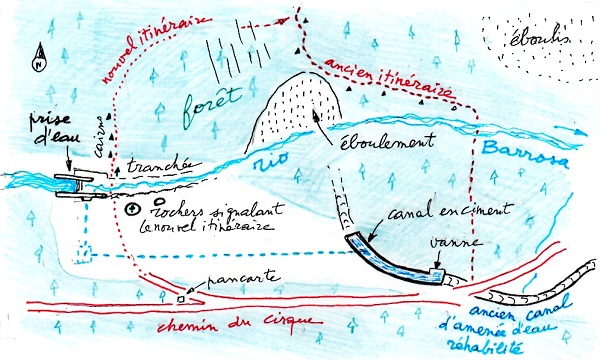 nouvel itinéraire
éboulis
N
ancien itinéraire
forêt
prise
d'eau
cairns
tranchée
éboulement
rio
Barrosa
rochers signalant
le nouvel itinéraire
canal en ciment
vanne
pancarte
chemin du cirque
ancien canal
d'amenée d'eau
réhabilité